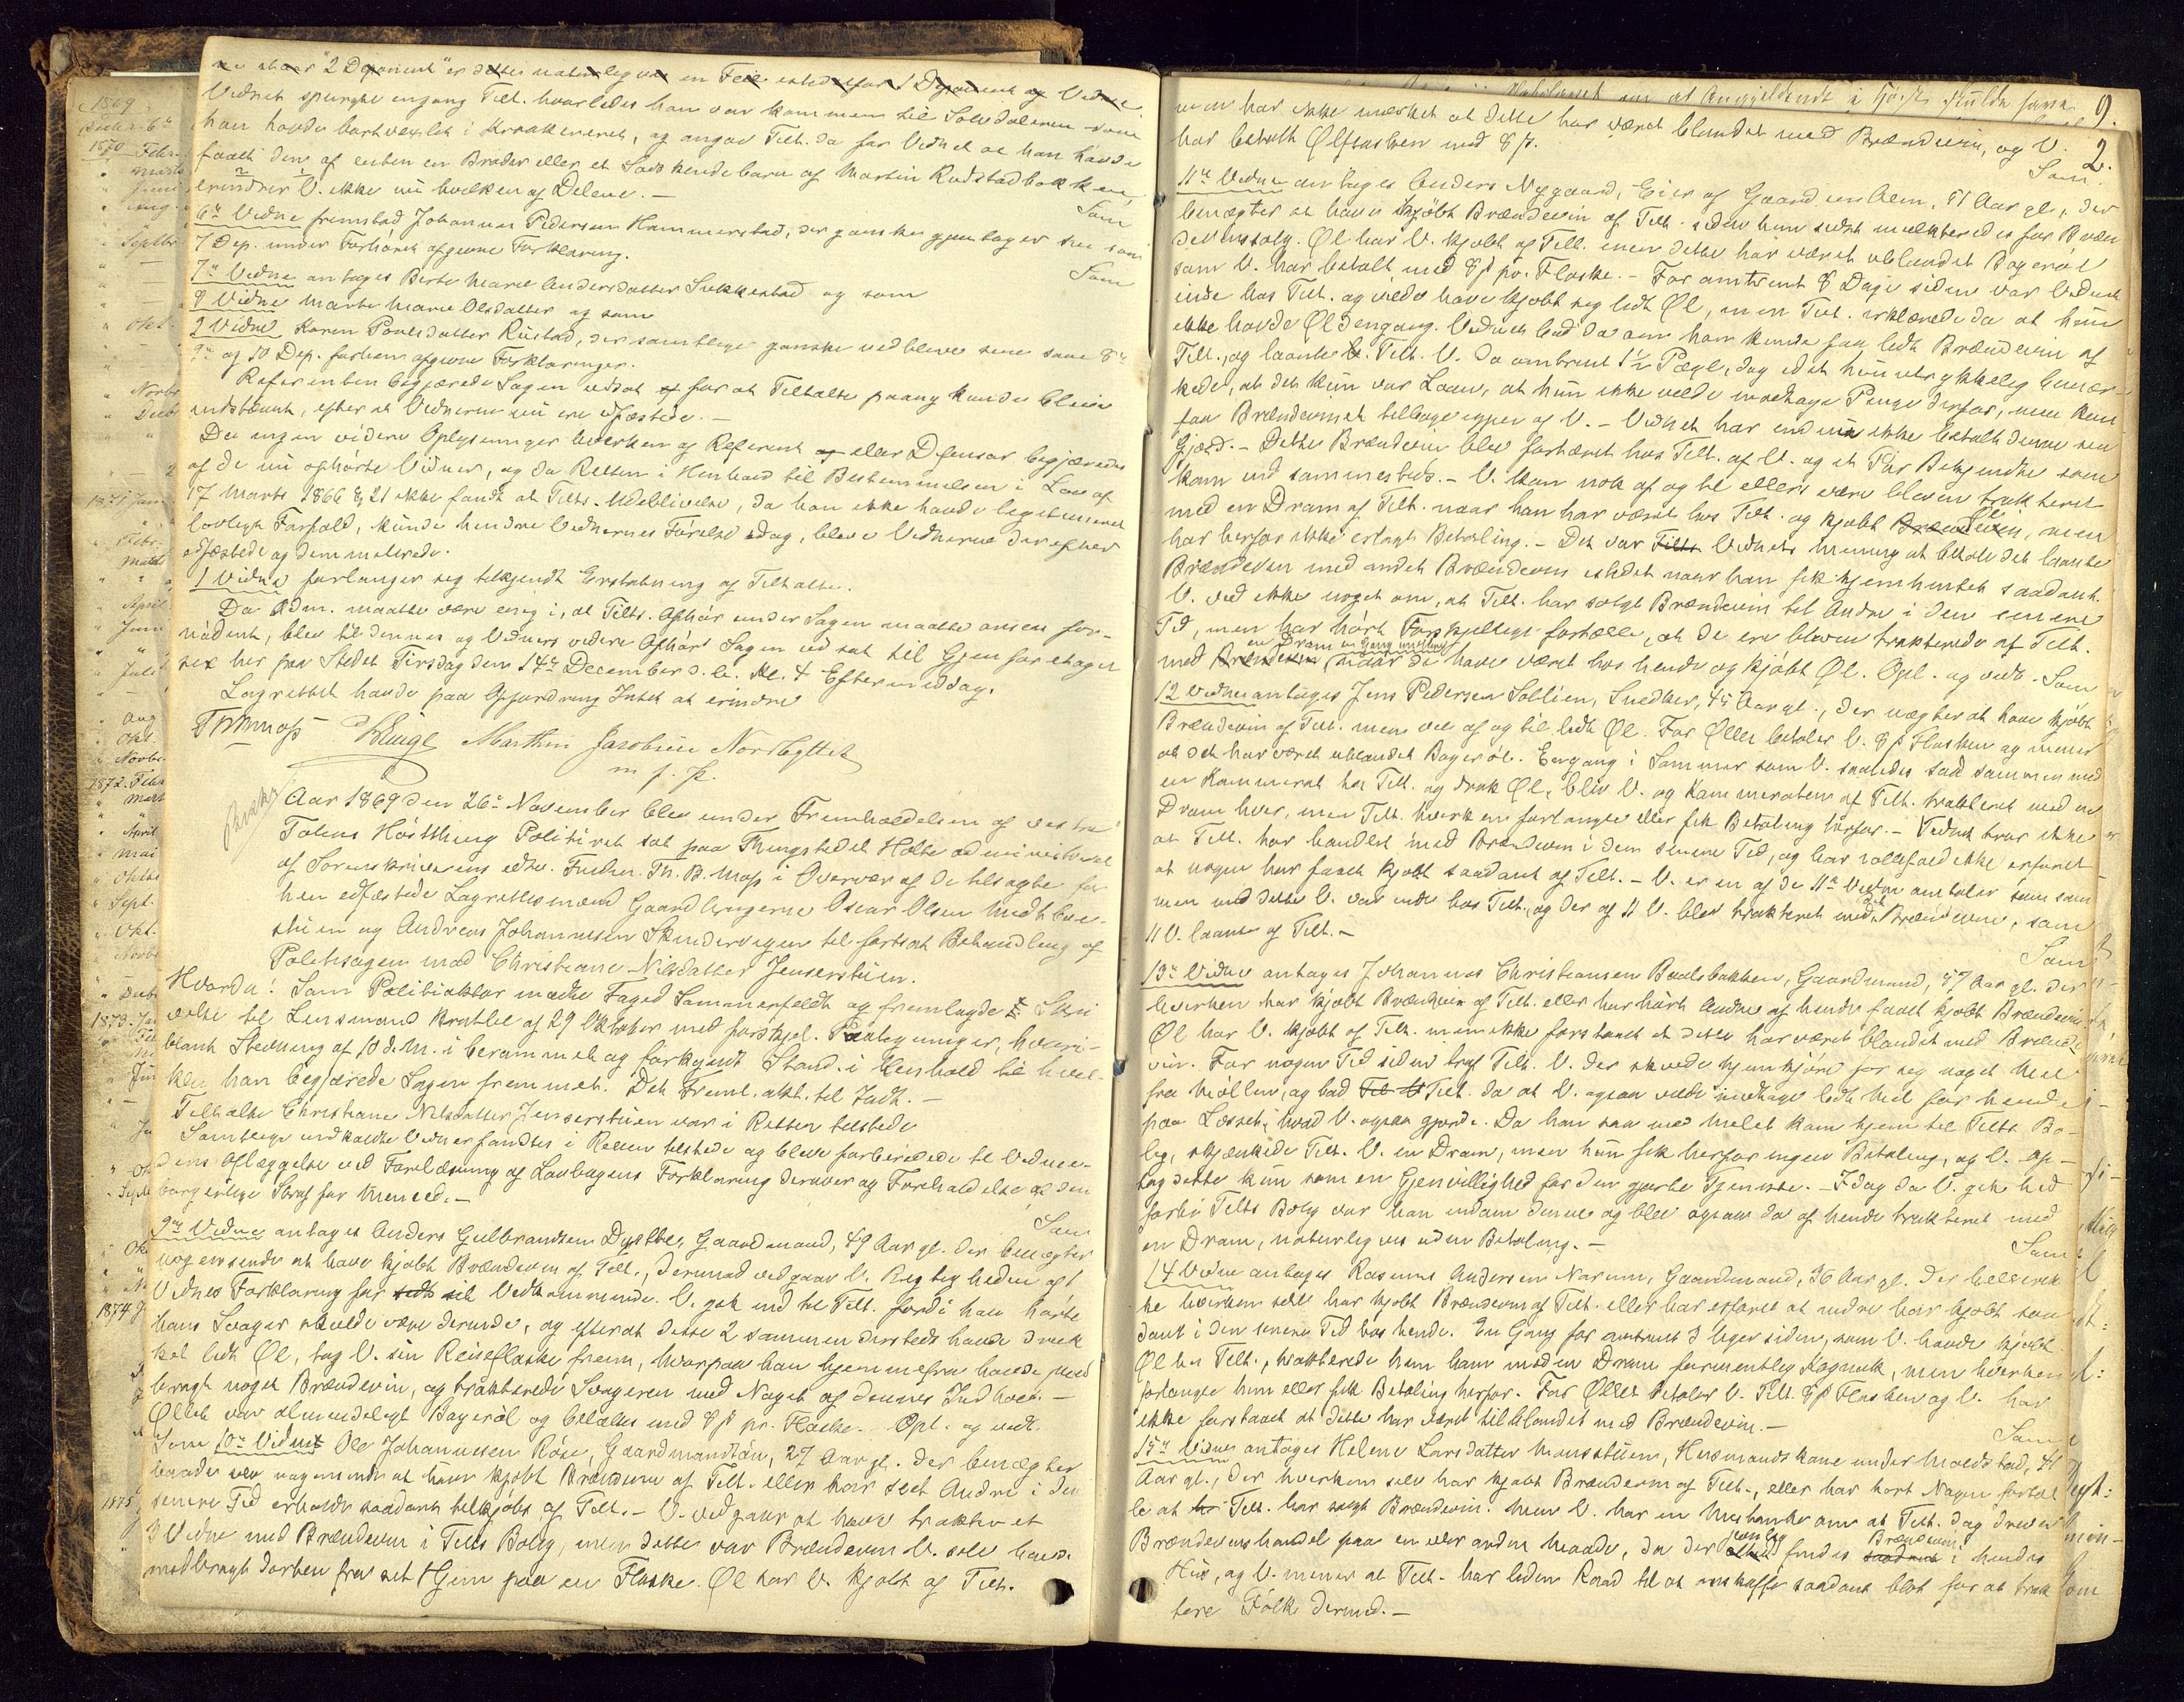 staar "2 Deponent" er dette naturligvis en Feil istedetfor 1 Deponent og Vidne
Vidnet spurgte engang Tilt. hvorledes han var kommen til Sølvdaleren som
han havde bortvexlet i Kroakværnet, og angav Tilt. da for Vidnet at han havde
faaet den af enten en Broder eller et Sødskendebarn af Martin Rudstadbakken,
erindrer V. ikke nu hvilken af Delene. —
Som
6te Vidne fremstod Johannes Pedersen Hammerstad, der ganske gjentager sin som
7 Dep. under Forhøret afgivne Forklaring.
Som
7de Vidne antages Berte Marie Andersdatter Sukkestad og som
8 Vidne Marte Marie Olsdatter og som
9 Vidne Karen Poulsdatter Rustad, der samtlige ganske vedbleve sine som 8de
9de og 10 Dep. forhen afgivne Forklaringer.
Referenten begjærede Sagen udsat for at Tiltalte paany kunde blive
indstævnt, efter at Vidnerne nu ere edfæstede. —
Da ingen videre Oplysninger hverken af Referent eller Defensor begjæredes
af de nu afhørte Vidner, og da Retten i Henhold til Bestemmelsen i Lov af
17 Marts 1866 § 21 ikke fandt at Tilts. Udeblivelse, da han ikke havde legitimeret
lovligt Forfald, kunde hindre Vidnernes Førelse idag, bleve Vidnerne derefter
edfæstede og dimitterede.
1 Vidne forlanger sig tilkjendt Erstatning af Tiltalte.
Da Adm. maatte være enig i, at Tilts. Afhør under Sagen maatte ansees for-
nødent, blev til dennes og Vidners videre Afhør Sagen udsat til Gjenforetagel
se her paa Stedet Tirsdag den 14de December d. A. Kl. 4 Eftermiddag.
Lagrettet havde paa Opfordring Intet at erindre
Th B Moss Martin Jacobsen Nordbyttet
m. f. P.
Aar 1869 den 26de November blev under Fremholdelsen af vestre
Totens Høstthing Politiret sat paa Thingstedet Holte administreret
af Sorenskriverens edsv. Fuldm. Th. B. Moss i Overvær af de tilsagte for
hen edfæstede Lagrettesmænd Gaardbrugerne Oscar Olsen Midtbøe-
stuen og Andreas Johannesen Skinderuigen til fortsat Behandling af
Politisagen mod Christiane Nilsdatter Jenserstuen.
Hvorda: Som Politiaktor mødte Foged Sommerfeldt og fremlagde Skri
velse til Lensmand Krabbel af 29 Oktober med forskjel. Paategninger, hvori-
blandt Stevning af 10 d. M. i berammet og forkyndt Stand, i Henhold til hvil-
ken han begjærede Sagen fremmet. Det Freml. akt. til Indt. —
Tiltalte Christiane Nilsdatter Jenserstuen var i Retten tilstede
Samtlige indkaldte Vidner fandtes i Retten tilstede og bleve forberedede til Vidnee-
dens Aflæggelse ved Forelæsning af Lovbogens Forklaring derover og Foreholdelse af den
borgerlige Straf for Meneed. —
Som
9de Vidne antages Anders Gulbrandsen Dystbe, Gaardmand, 49 Aar gl. der benægter
nogensinde at have kjøbt Brændevin af Tilt., derimod vedgaar V. Rigtigheden af 1
Vidnes Forklaring for Vedkommende. V. gik ind til Tilt. fordi han hørte
hans Svoger skulde være derinde, og efterat disse 2 sammen dersteds havde druk
ket lidt Øl, tog V. sin Reiseflaske frem, hvorpaa han hjemmefra havde med
bragt noget Brændevin, og trakterede Svogeren med Noget af dennes Indhold. —
Øllet var almindeligt Bayerøl og betaltes med 8 ß pr. Flaske. Opl. og vedt.
Som 10de Vidne Ole Johannessen Röse, Gaardmandssøn, 27 Aar gl. der benægter
baade selv nogensinde at have kjøbt Brændevin af Tilt. eller har seet Andre i den
senere Tid erholde saadant tilkjøbs af Tilt. — V. vedgaar at have trakteret
3 Vidne med Brændevin i Tilts Bolig, men dette var Brændevin V. selv havde
medbragt dertil fra sit Hjem paa en Flaske. Øl har V. kjøbt af Tilt.
9.
2.
men har ikke mærket at dette har været blandet med Brændevin, og V.
har betalt Ølflasken med 8 ß.
Som
11te Vidne antages Anders Nygaard, Eier af Gaarden Alm, 51 Aar gl., der
benægter at have kjøbt Brændevin af Tilt. siden hun sidst mulkteredes for Bræn
devinssalg. Øl har V. kjøbt af Tilt. men dette har været ublandet Bayerøl
som V. har betalt med 8 ß pr. Flaske. — For omtrent 8 Dage siden var Vidnet
inde hos Tilt. og vilde have kjøbt sig lidt Øl, men Tilt. erklærede da at hun
ikke havde Øl dengang. Vidnet bad da om han kunde faa lidt Brændevin af
Tilt., og laante Tilt. V. da omtrent 1½ Pægl, dog idet hun udtrykkelig bemær-
kede, at det kun var Laan, at hun ikke vilde modtage Penge derfor, men kun
faa Brændevinet tilbage igjen af V. — Vidnet har endnu ikke betalt denne sin
Gjæld. — Dette Brændevin blev fortæret hos Tilt. af V. og et Par Bekjendte som
kom ind sammesteds. — V. kan nok af og til ellers være bleven trakteret
med en Dram af Tilt. naar han har været hos Tilt. og kjøbt Øl, men
har herfor ikke erlagt Betaling. — Det var Vidnets Mening at betale det laante
Brændevin med andet Brændevin istedet naar han fik hjemhentet saadant.
V. ved ikke noget om, at Tilt. har solgt Brændevin til Andre i den senere
Tid, men har hørt Forskjellige fortælle, at de ere bleven trakterede af Tilt.
med en Dram en Gang imellem naar de have været hos hende og kjøbt Øl. Opl. og vedt. Som
12 Vidne antages Jens Pedersen Sollien, Snedker, 45 Aar gl., der nægter at have kjøbt
Brændevin af Tilt. men vel af og til lidt Øl. For Øllet betaler V. 8 ß Flasken og mener
at det har været ublandet Bayerøl. Engang i Sommer som V. saaledes sad sammen med
en Kammerat hos Tilt. og drak Øl, blev V. og Kammeraten af Tilt. trakteret med en
Dram hver, men Tilt. hverken forlangte eller fik Betaling herfor. — Vidnet tror ikke
at Tilt. har handlet med Brændevin i den senere Tid, og har iallefald ikke erfaret
at nogen har faaet kjøbt saadant af Tilt. — V. er en af de 11te Vidne omtaler som sam
men med dette V. var inde hos Tilt., og der af 11 V. blev trakteret med det Brændevin, som
11 V. laante af Tilt. —
Som
13de Vidne antages Johannes Christiansen Baalsbakken, Gaardmand, 57 Aar gl. der
hverken har kjøbt Brændevin af Tilt. eller har hørt Andre af hende faaet kjøbt Brændevin
Øl har V. kjøbt af Tilt. men ikke forstaaet at dette har været blandet med Brænde
vin. For nogen Tid siden traf Tilt. V. der skulde hjemkjøre for sig noget Mel
fra Møllen, og bad Tilt. da at V. ogsaa vilde medtage lidt Mel for hende
paa Læsset, hvad V. ogsaa gjorde. Da han saa med Melet kom hjem til Tilts Bo-
lig, skjænkede Tilt. V. en Dram, men hun fik herfor ingen Betaling, og V. op-
tog dette kun som en Gjenvillighed for den gjorte Tjeneste. — Idag da V. gik hid
forbi Tilts Bolig var han indom denne og blev ogsaa da af hende trakteret med
en Dram, naturligvis uden Betaling. —
Som
14 Vidne antages Rasmus Andersen Narum, Gaardmand, 36 Aar gl. der hellerik
ke hverken selv har kjøbt Brændevin af Tilt. eller har erfaret at andre har kjøbt saa
dant i den senere Tid hos hende. En Gang for omtrent 3 Uger siden, som V. havde kjøbt
Øl hos Tilt., trakterede hun ham med en Dram formentlig Kognak, men hverken
forlangte hun eller fik Betaling herfor. For Øllet betaler V. Tilt. 8 ß Flasken og V. har
ikke forstaaet at dette har været tilblandet med Brændevin. —
Som
15de Vidne antages Helene Larsdatter Monsstuen, Husmandskone under Moldstad, 41
Aar gl., der hverken selv har kjøbt Brændevin af Tilt., eller har hørt Nogen fortæl
le at Tilt. har solgt Brændevin. Men V. har en Mistanke om at Tilt. dog driver
Brændevinshandel paa en eller anden Maade, da der jevnlig findes Brændevin i hendes
Hus, og V. mener at Tilt. har liden Raad til at anskaffe saadant blot for at trak
tere Folk dermed. —